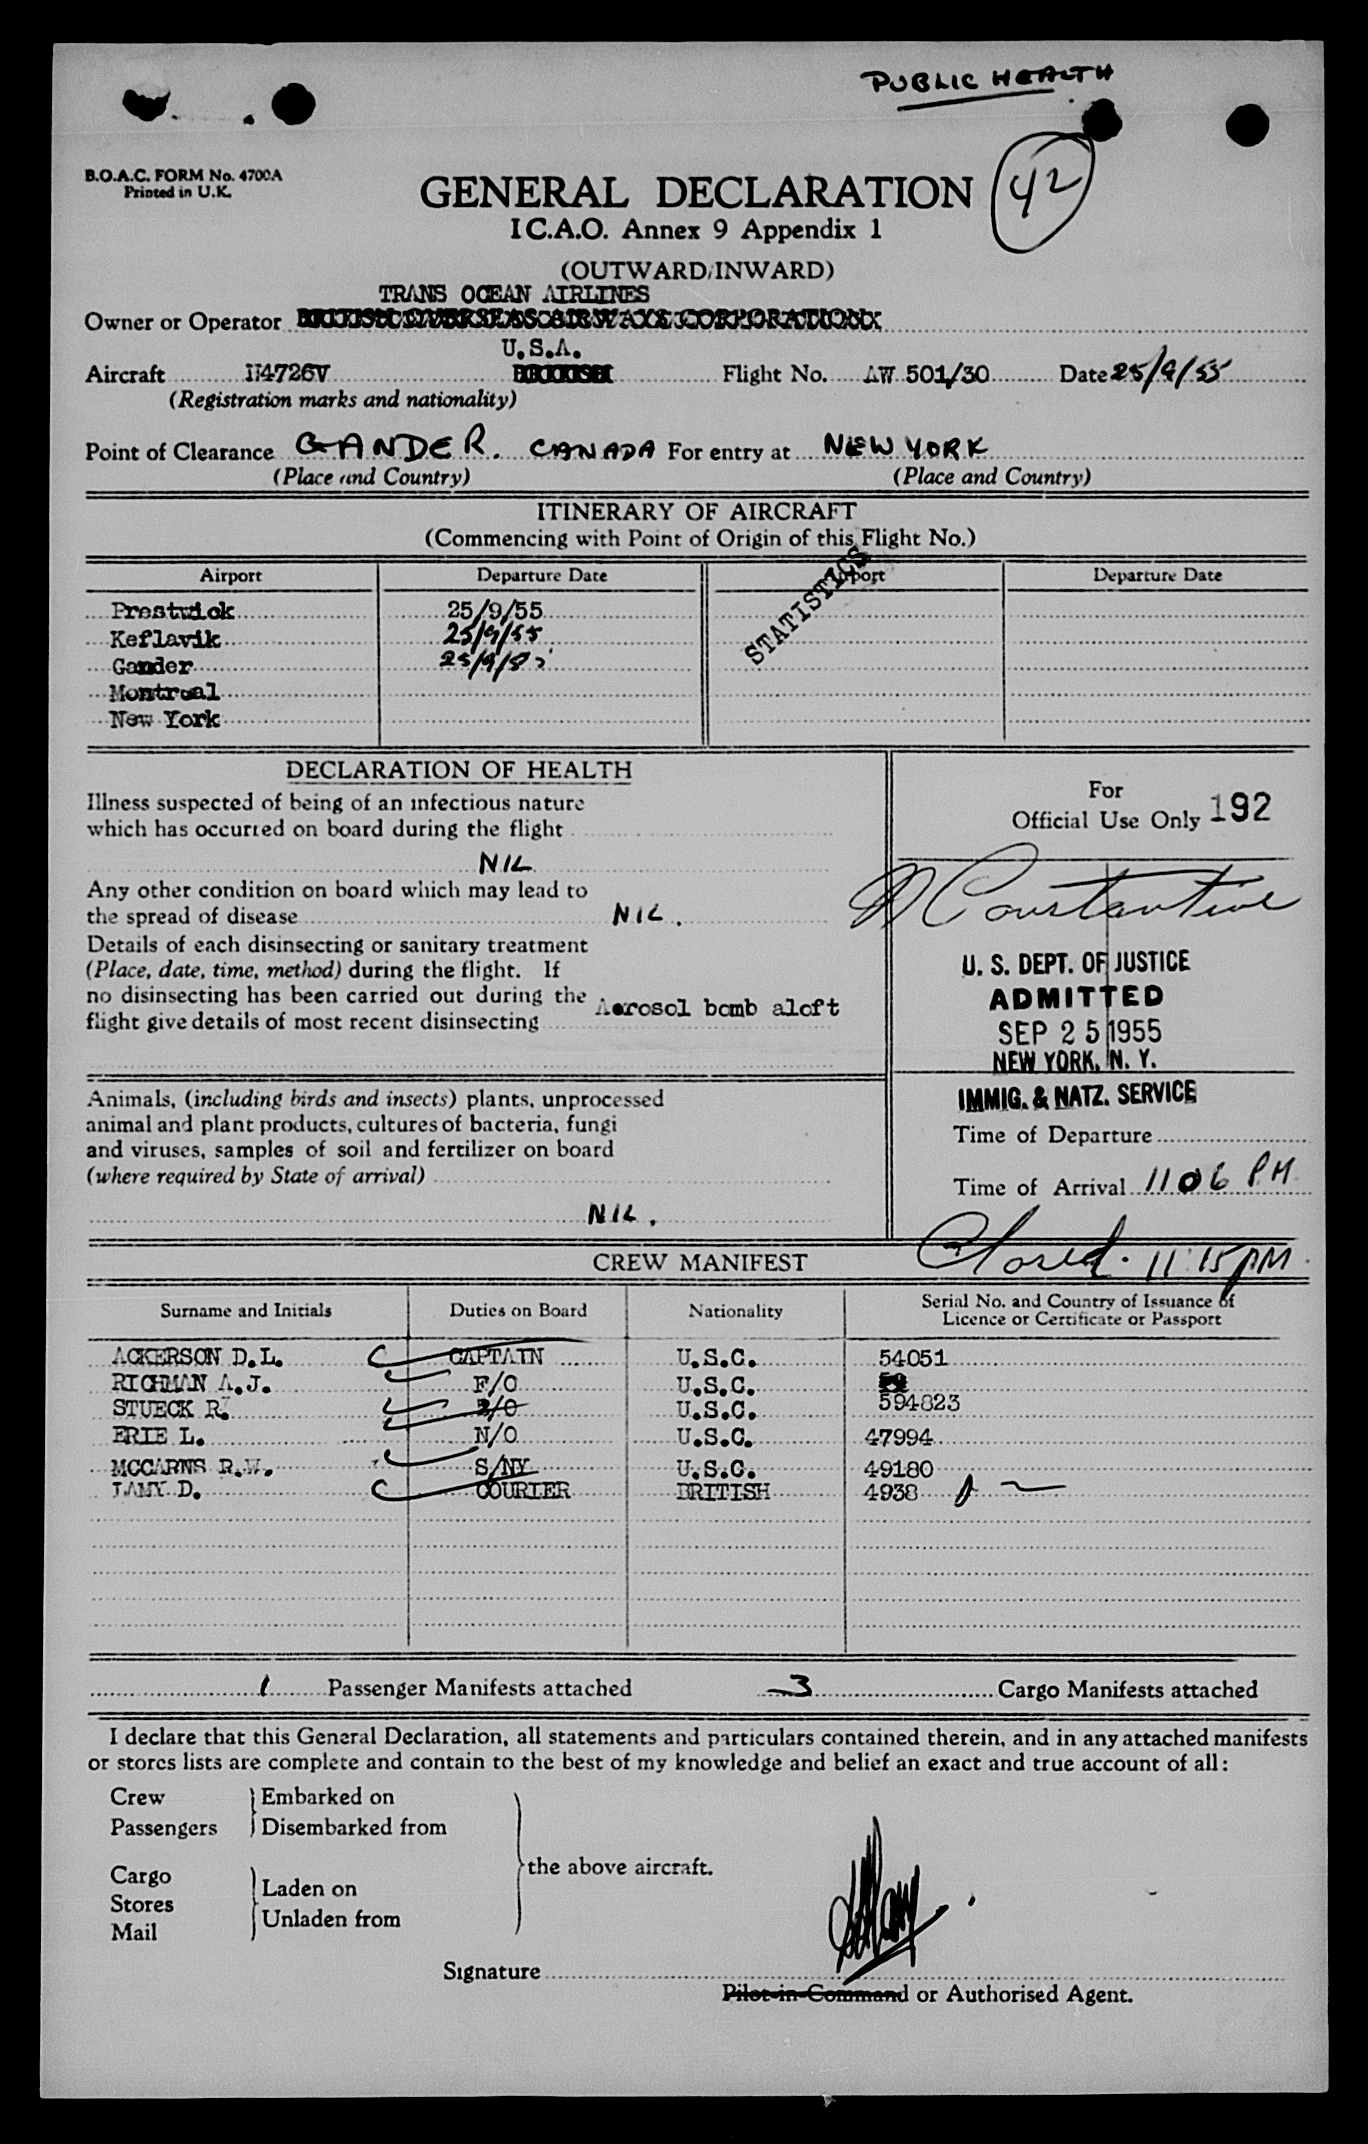 PUBLIC HEALTH
42
B.O.A.C. FORM No. 4700A
Printed in U.K.
GENERAL DECLARATION
I C.A.O. Annex 9 Appendix 1
(OUTWARD/INWARD)
TRANS OCEAN AIRLINES
Owner or Operator BRITISH OVERSEAS AIRWAYS CORPORATION
U.S.A.
Aircraft N4726V BRITISH Flight No. AW 501/30 Date 25/9/55
(Registration marks and nationality)
Point of Clearance GANDER. CANADA For entry at NEW YORK
(Place and Country) (Place and Country)
ITINERARY OF AIRCRAFT
(Commencing with Point of Origin of this Flight No.)
Airport Departure Date Airport Departure Date
STATISTICS
Prestwick 25/9/55
Keflavik 25/9/55
Gander 25/9/55
Montreal
New York
DECLARATION OF HEALTH
Illness suspected of being of an infectious nature
which has occurred on board during the flight
NIL
Any other condition on board which may lead to
the spread of disease NIL.
Details of each disinsecting or sanitary treatment
(Place, date, time, method) during the flight. If
no disinsecting has been carried out during the
flight give details of most recent disinsecting Aerosol bomb aloft
Animals, (including birds and insects) plants, unprocessed
animal and plant products, cultures of bacteria, fungi
and viruses, samples of soil and fertilizer on board
(where required by State of arrival)
NIL.
For
Official Use Only 192
Constantine
U. S. DEPT. OF JUSTICE
ADMITTED
SEP 25 1955
NEW YORK, N. Y.
IMMIG. & NATZ. SERVICE
Time of Departure
Time of Arrival 1106 PM
Closed. 11:15 PM.
CREW MANIFEST
Surname and Initials Duties on Board Nationality Serial No. and Country of Issuance of
Licence or Certificate or Passport
ACKERSON D.L. CAPTAIN U.S.C. 54051
RICHMAN A.J. F/O U.S.C.
STUECK R. 2/O U.S.C. 594823
ERIE L. N/O U.S.C. 47994
MCCARNS R.W. S/NY U.S.C. 49180
LAMY D. COURIER BRITISH 4938
1 Passenger Manifests attached 3 Cargo Manifests attached
I declare that this General Declaration, all statements and particulars contained therein, and in any attached manifests
or stores lists are complete and contain to the best of my knowledge and belief an exact and true account of all:
Crew Embarked on
Passengers Disembarked from
the above aircraft.
Cargo
Stores Laden on
Mail Unladen from
Signature
Pilot-in-Command or Authorised Agent.